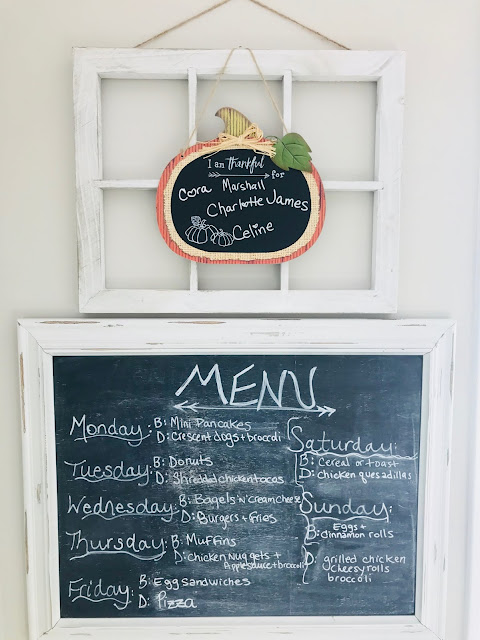 I am thankful
for
Cora Marshall
Charlotte James
Celine
MENU
Monday: B: Mini Pancakes
D: Crescent dogs + broccoli
Tuesday: B: Donuts
D: Shredded chicken tacos
Wednesday: B: Bagels 'n' cream cheese
D: Burgers + fries
Thursday: B: Muffins
D: Chicken Nuggets +
Applesauce + broccoli
Friday: B: Egg Sandwiches
D: Pizza
Saturday:
B: Cereal or toast
D: chicken quesadillas
Sunday:
B: Eggs +
cinnamon rolls
D: grilled chicken
cheesy rolls
broccoli